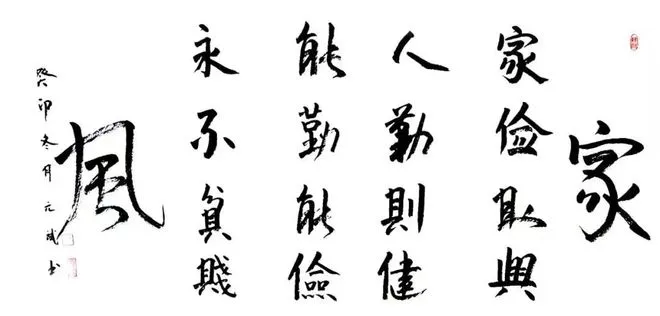 家
家俭则興
人勤則健
能勤能儉
永不貧賤
風
癸卯冬月元斌书